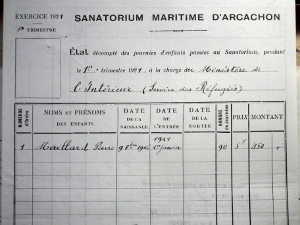 EXERCICE 1921
1er TRIMESTRE
SANATORIUM MARITIME D'ARCACHON
État décompté des journées d'enfants passées au Sanatorium, pendant
le 1er trimestre 1921, à la charge du Ministère de
l'Intérieur (Service des Réfugiés)
NOMS ET PRÉNOMS DES ENFANTS
DATE DE LA NAISSANCE
DATE DE L'ENTRÉE
DATE DE LA SORTIE
PRIX
MONTANT
1921
1 9 1er janvier 90 5f 450 "